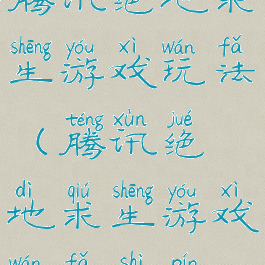 腾讯绝地求
shēng yóu xì wán fǎ
生游戏玩法
téng xùn jué
（腾讯绝
dì qiú shēng yóu xì
地求生游戏
wán fǎ shì pín